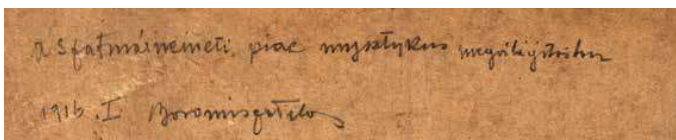 a szatmárnémeti piac mysztikus megvilágításban
1916. I Boromisza Tibor